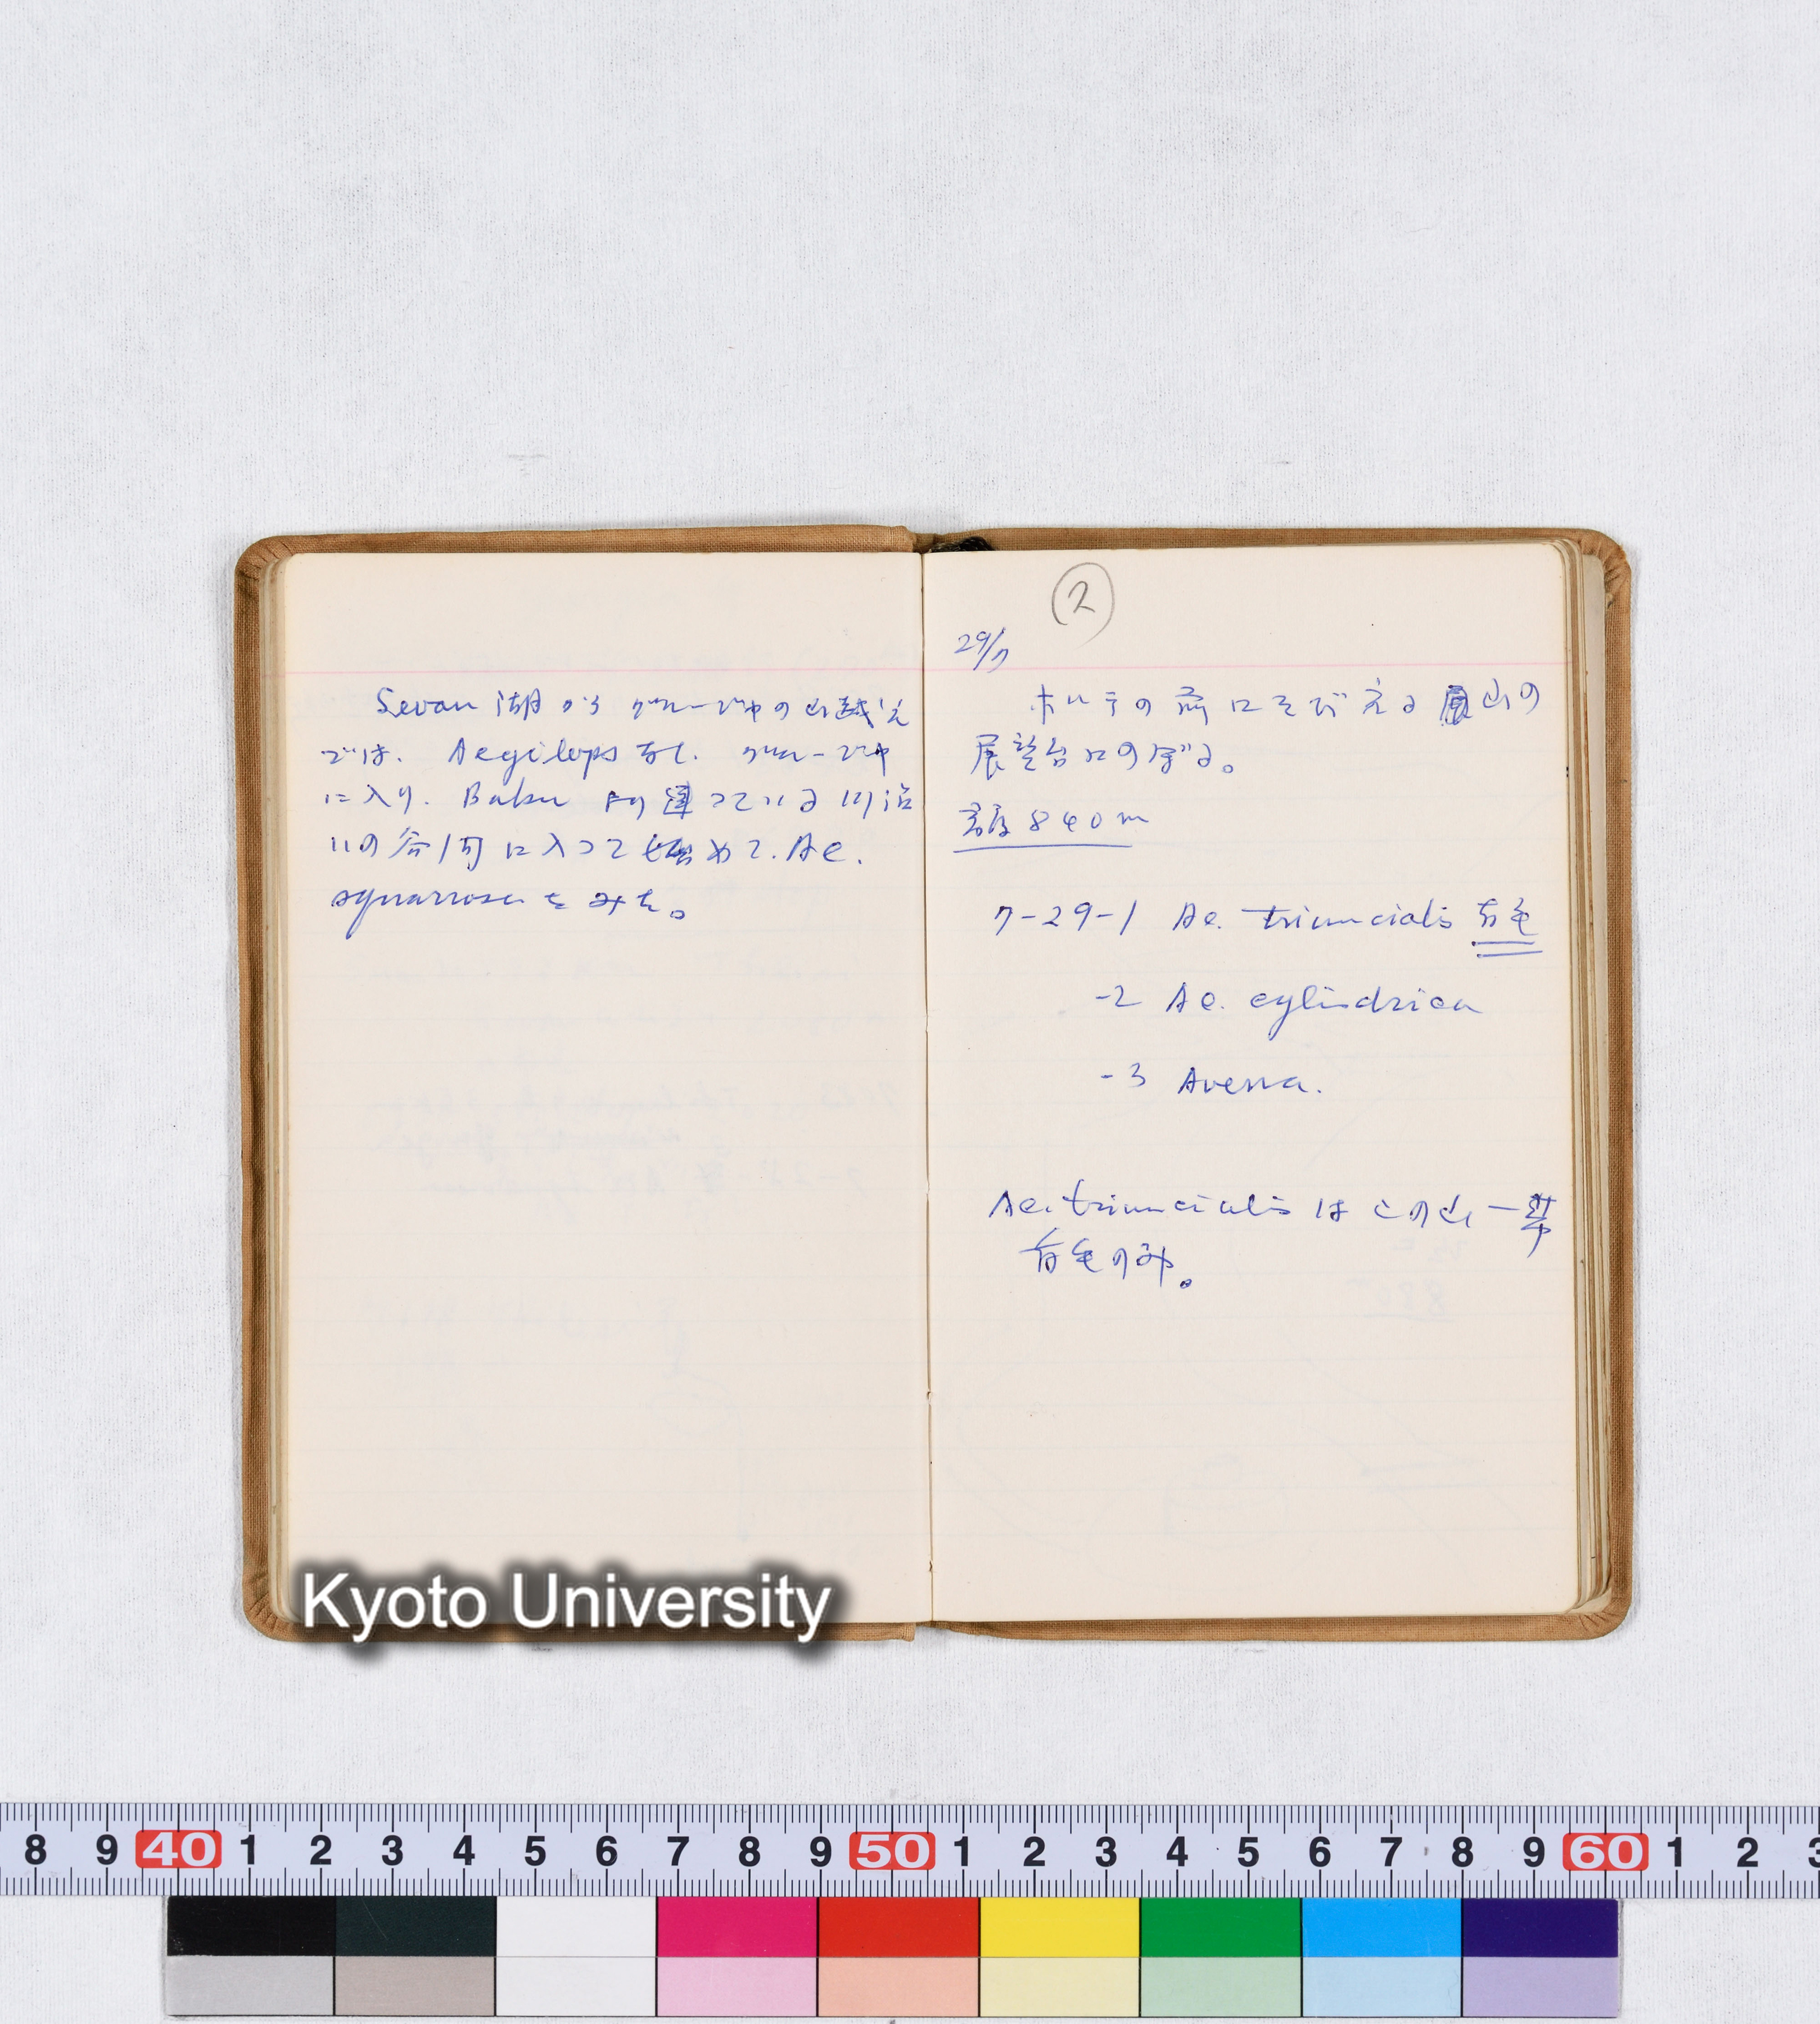 Sevan 湖から グルージヤの山越え
では、Aegilops なし. グルージヤ
に入り. Baku より通っている川沿
いの谷間に入って始めて. Ae.
squarrosa をみた。
2
29/7
ホテルの前にそびえる山の
展望台にのぼる。
高度 840m
7-29-1 Ae. triuncialis 有毛
-2 Ae. cylindrica
-3 Avena.
Ae. triuncialis はこの山一帯
有毛のみ。
Kyoto University
8 9 40 1 2 3 4 5 6 7 8 9 50 1 2 3 4 5 6 7 8 9 60 1 2 3